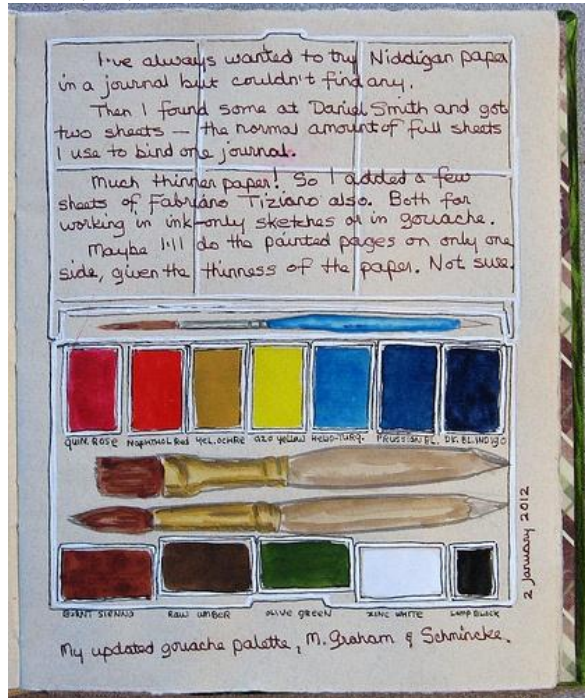 I've always wanted to try Niddigan paper
in a journal but couldn't find any.
Then I found some at Daniel Smith and got
two sheets — the normal amount of full sheets
I use to bind one journal.
Much thinner paper! So I added a few
sheets of Fabriano Tiziano also. Both for
working in ink-only sketches or in gouache.
Maybe I'll do the painted pages on only one
side, given the thinness of the paper. Not sure.
QUIN. ROSE NAPHTHOL Red YEL. OCHRE azo yellow HELIO-TURQ. PRUSSIAN BL. DK. BL. INDIGO
BURNT SIENNA RAW UMBER OLIVE GREEN ZINC WHITE LAMP BLACK
2 January 2012
My updated gouache palette, M. Graham & Schmincke.